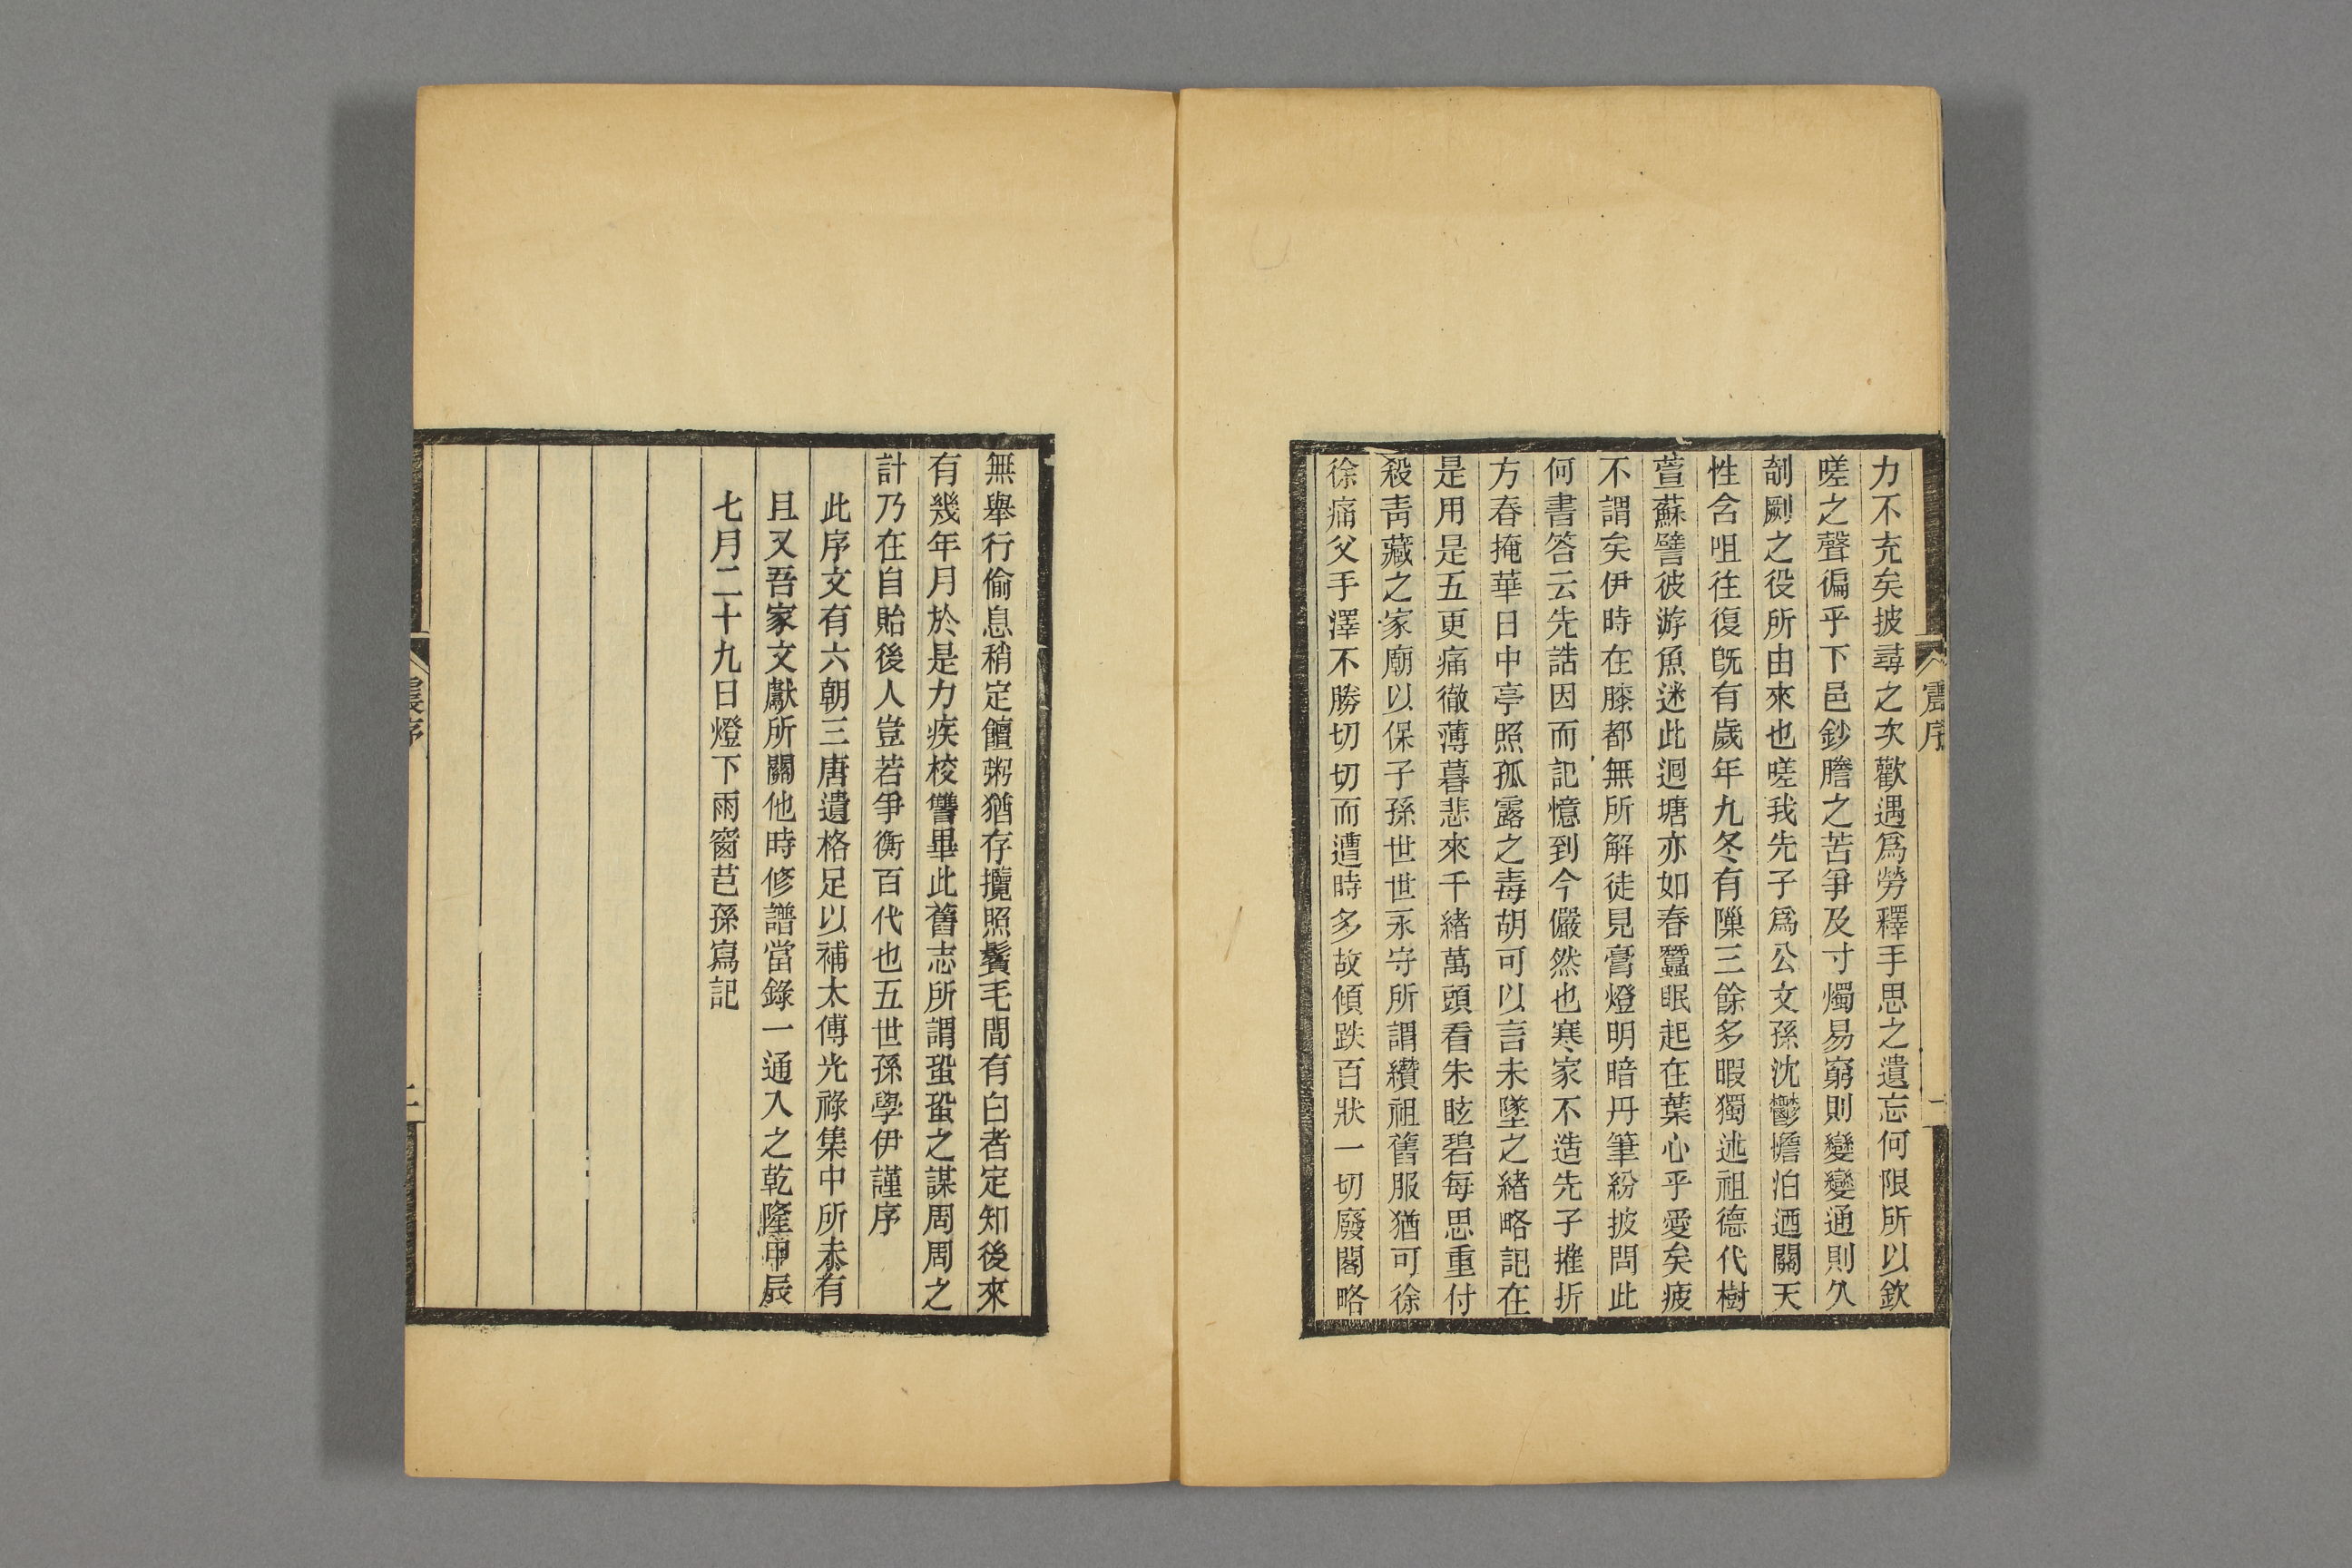 力不充矣披尋之次歡遇為勞釋手思之遺忘何限所以欽
嗟之聲徧乎下邑鈔謄之苦爭及寸燭易窮則變變通則久
剞劂之役所由來也嗟我先子為公文孫沈鬱憺泊迺關天
性含咀往復旣有歲年九冬有隟三餘多暇獨述祖德代樹
萱蘇譬彼游魚迷此迴塘亦如春蠶眠起在葉心乎愛矣疲
不謂矣伊時在膝都無所解徒見膏燈明暗丹筆紛披問此
何書答云先誥因而記憶到今儼然也寒家不造先子摧折
方春掩華日中亭照孤露之毒胡可以言未墜之緒略記在
是用是五更痛徹薄暮悲來千緒萬頭看朱眩碧每思重付
殺靑藏之家廟以保子孫世世永守所謂纘祖舊服猶可徐
徐痛父手澤不勝切切而遭時多故傾跌百狀一切廢閣略
震序
一
無舉行偷息稍定饘粥猶存攬照鬢毛間有白者定知後來
有幾年月於是力疾校讐畢此舊志所謂蛩蛩之謀周周之
計乃在自貽後人豈若爭衡百代也五世孫學伊謹序
此序文有六朝三唐遺格足以補太傅光祿集中所未有
且又吾家文獻所關他時修譜當錄一通入之乾隆甲辰
七月二十九日燈下雨窗芑孫寫記
震序
二